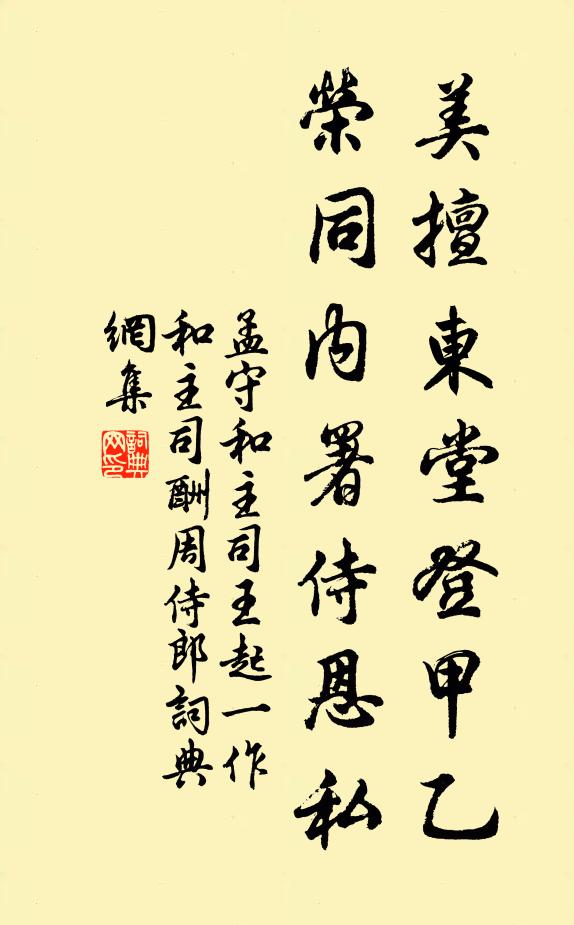 美擅東堂登甲乙
榮同内署侍恩私
孟守和主司王起一作
和主司酬周侍郎詞典
網集
詞典網印